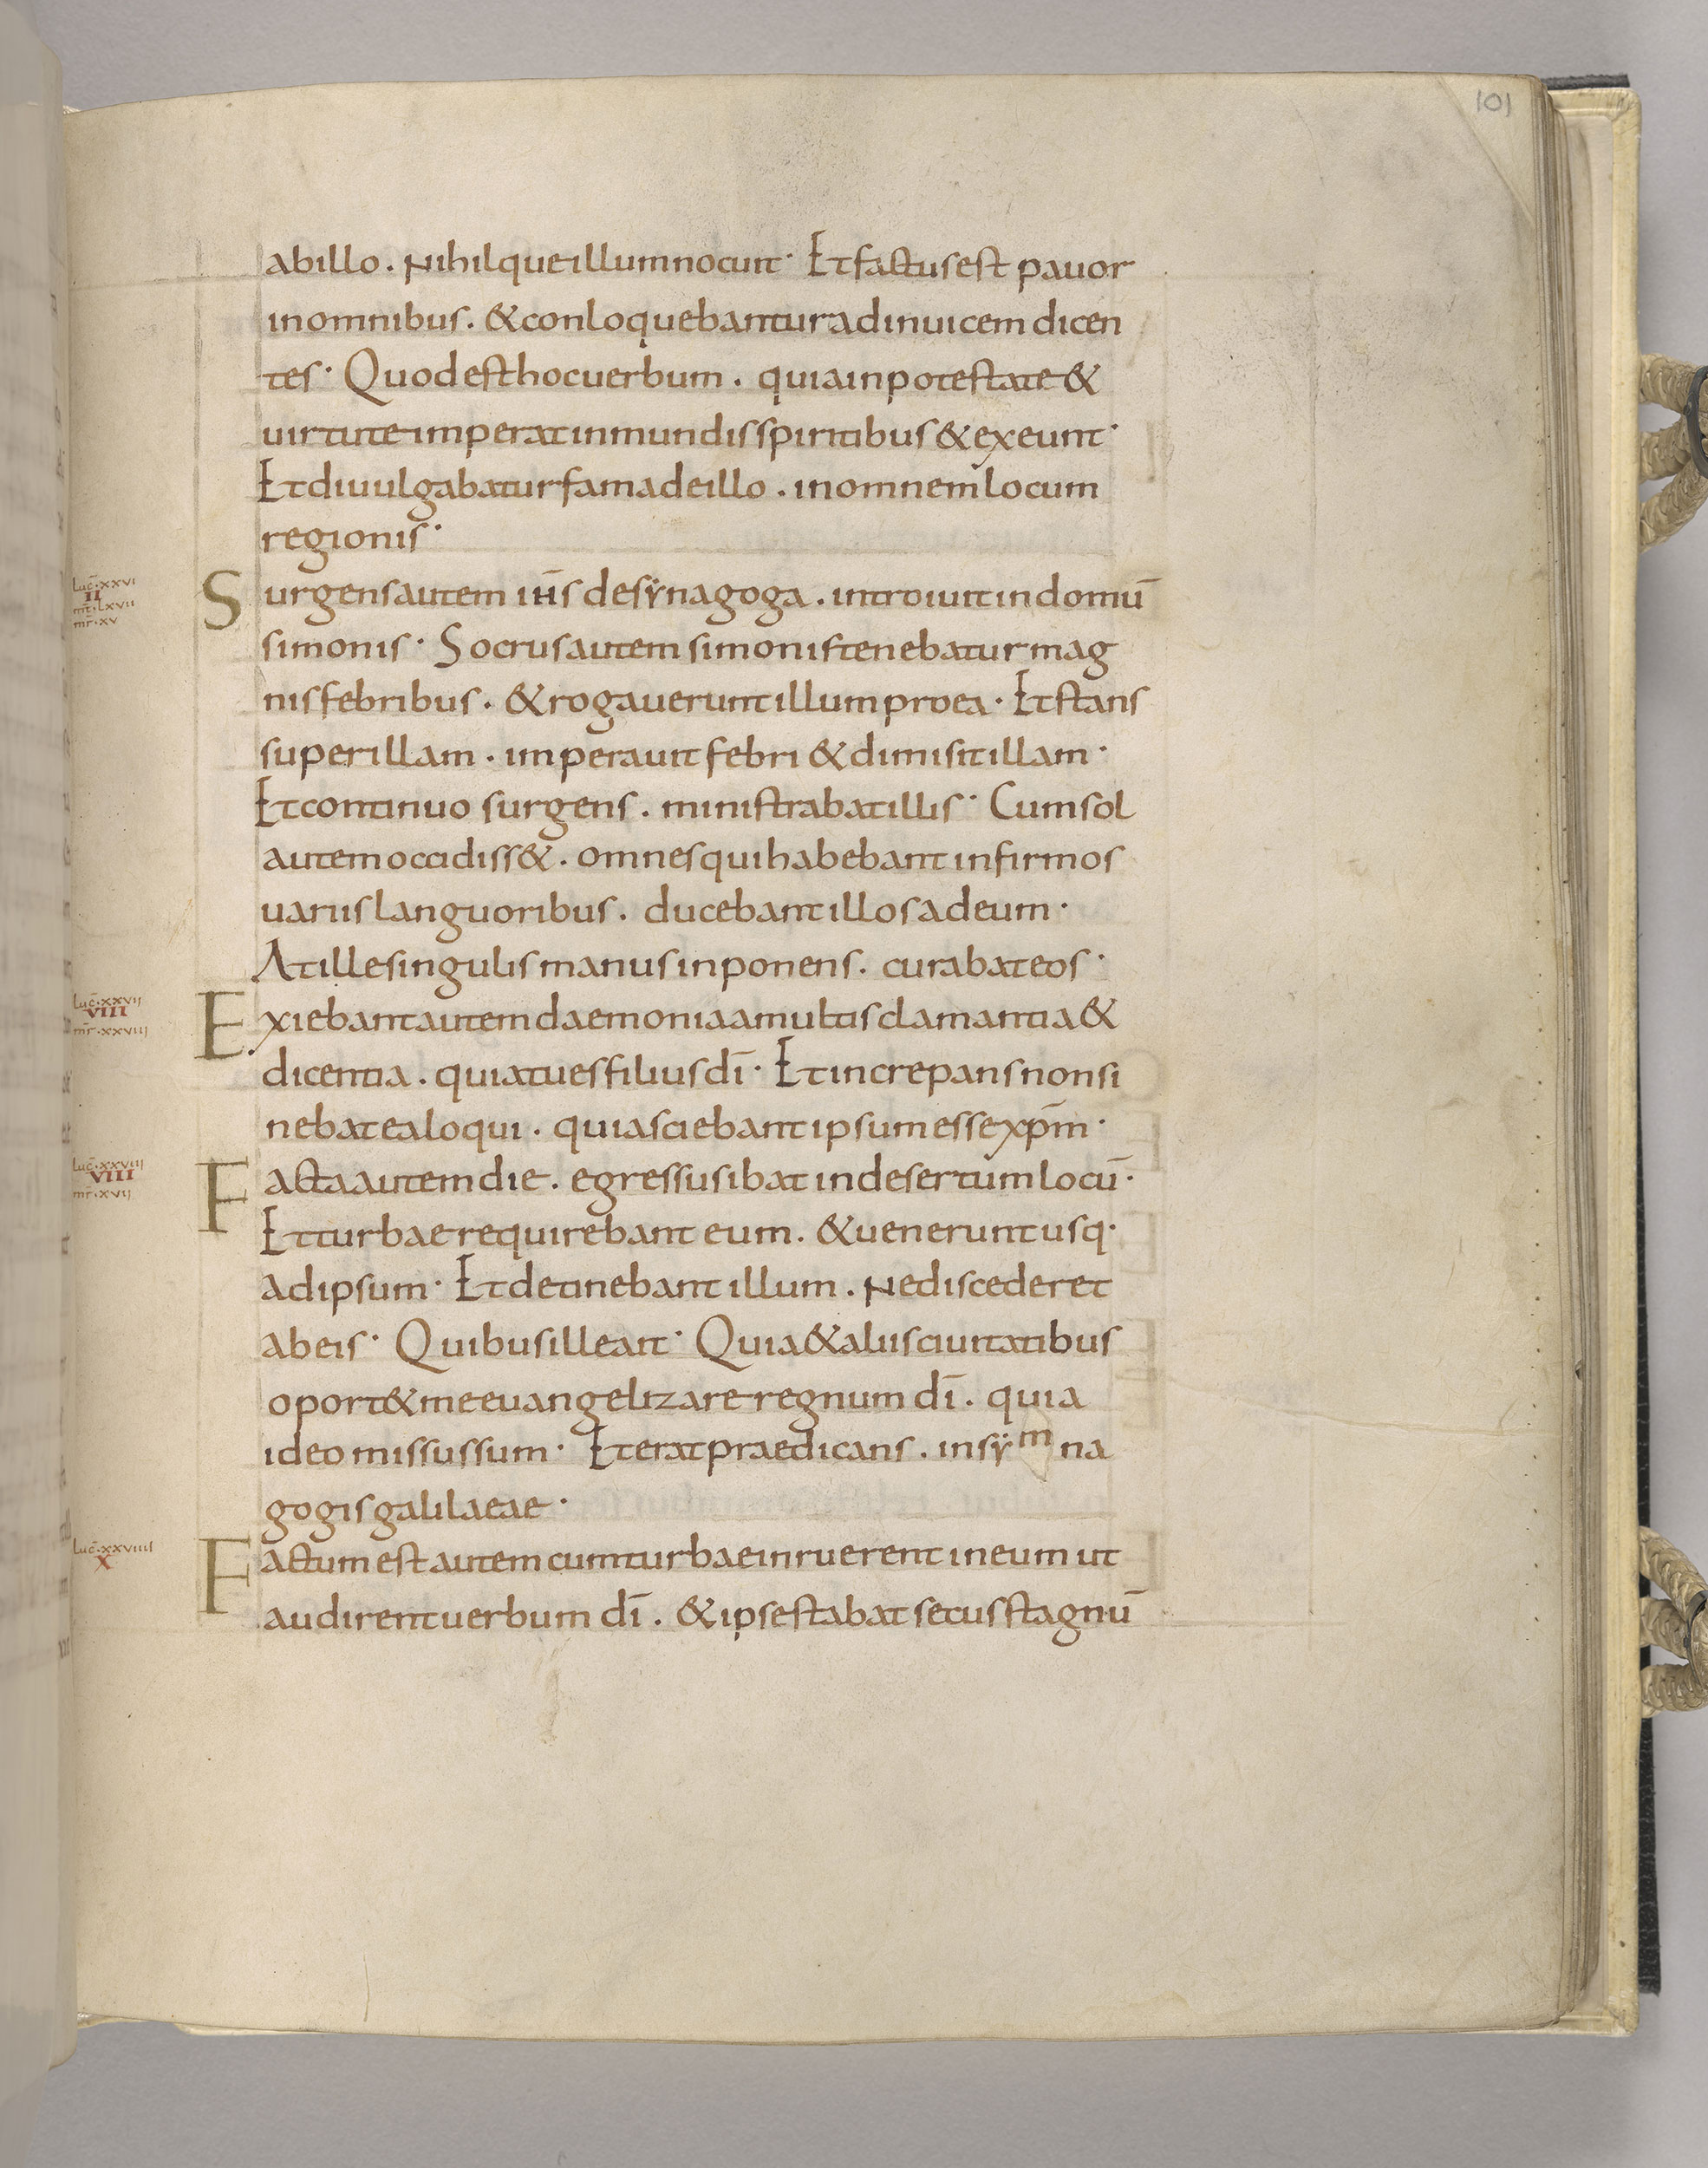 101
abillo. Nihilqueillumnocuit· Etfactusest pauor
inomnibus. &conloquebanturadinuicem dicen
tes· Quodesthocuerbum. quiainpotestate &
uirtuteimperatinmundisspiritibus&exeunt·
Etdiuulgabaturfamadeillo. inomnemlocum
regionis·
Luc̄·xxvi
II
mt̄·lxvii
mr̄·xv
Surgensautem ih̄s desẏnagoga. introiuitindomū
simonis· Socrusautemsimonistenebaturmag
nisfebribus. &rogaueruntillumproea· Etstans
superillam. imperauitfebri &dimisitillam·
Etcontinuo surgens. ministrabatillis· Cumsol
autemoccidiss&. omnesquihabebantinfirmos
uariislanguoribus. ducebantillosadeum·
Atillesingulismanusinponens. curabateos·
Luc̄·xxvii
VIII
mr̄·xxviii
Exiebantautemdaemoniaamultisclamantia&
dicentia. quiatuesfiliusdī· Etincrepansnonsi
nebatealoqui. quiasciebantipsumessexpm̄·
Luc̄·xxviii
VIII
mr̄·xvii
Factaautemdie. egressusibatindesertumlocū·
Etturbaerequirebant eum. &ueneruntusq·
adipsum· Etdetinebantillum. Nediscederet
abeis· Quibusilleait· Quia&aliisciuitatibus
oport&meeuangelizareregnum dī. quia
ideomissussum· Eteratpraedicans. insẏ m na
gogisgalilaeae·
Luc̄·xxviiii
X
Factumestautemcumturbaeinruerentineum ut
audirentuerbum dī. &ipsestabatsecusstagnū